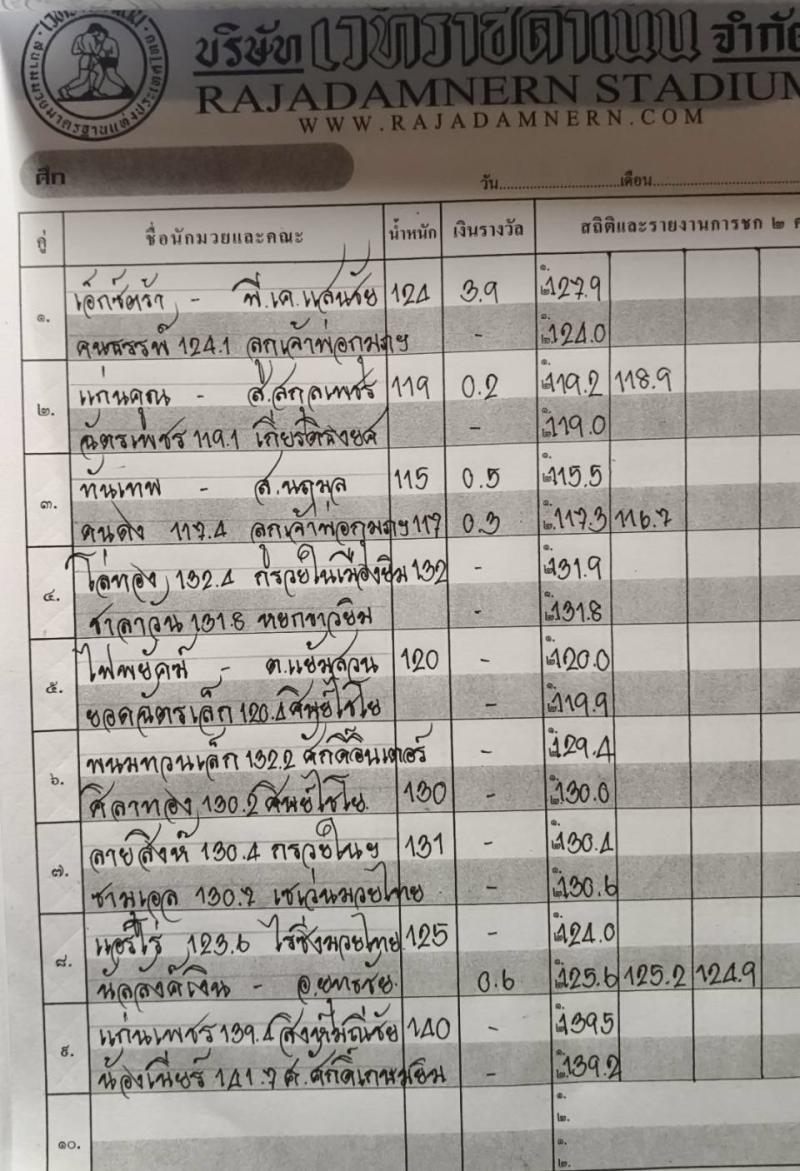 บริษัท เวทีราชดำเนิน จำกัด
สนามมวยมาตรฐานแห่งประเทศไทย
RAJADAMNERN STADIUM
WWW.RAJADAMNERN.COM
ศึก
วัน เดือน
คู่ ชื่อนักมวยและคณะ น้ำหนัก เงินรางวัล สถิติและรายงานการชก ๒
๑. เอ็กซ์ตร้า - พี.เค.แสนชัย 124 3.9 ๑. 127.9
คนธรรพ์ 124.1 ลูกเจ้าพ่อกุมภฯ - ๒. 124.0
๒. แก่นคูณ - ส.สกุลเพชร 119 0.2 ๑. 119.2 118.9
ฉัตรเพชร 119.1 เกียรติธงยศ - ๒. 119.0
๓. ทันเทพ - ส.นฤมล 115 0.5 ๑. 115.5
คนดัง 117.4 ลูกเจ้าพ่อกุมภฯ 117 0.3 ๒. 117.3 116.7
๔. โล่ทอง 132.4 กรวยในเมืองยิม 132 - ๑. 131.9
ชาลาวัน 131.8 หยกขาวยิม - ๒. 131.8
๕. ไฟพยัคฆ์ - ต.แย้มสวน 120 - ๑. 120.0
ยอดฉัตรเล็ก 120.4 ศิษย์ไชโย - ๒. 119.9
๖. พนมทวนเล็ก 132.2 ศักดิ์อินเตอร์ - ๑. 129.4
ศิลาทอง 130.2 ศิษย์ไชโย. 130 - ๒. 130.0
๗. ลายสิงห์ 130.4 กรวยในฯ 131 - ๑. 130.4
ซามูเอล 130.2 เซเว่นมวยไทย - ๒. 130.6
๘. แอร์โร่ 123.6 ไรซิ่งมวยไทย 125 - ๑. 124.0
บัลลังค์เงิน - อ.ยุทธชัย. 0.6 ๒. 125.6 125.2 124.9
๙. แก่นเพชร 139.4 สิงห์มณีชัย 140 - ๑. 139.5
น้องเบียร์ 141.7 ศ.ศักดิ์เกษมยิม - ๒. 139.2
๑๐. ๑.
๒.
๑.
๒.